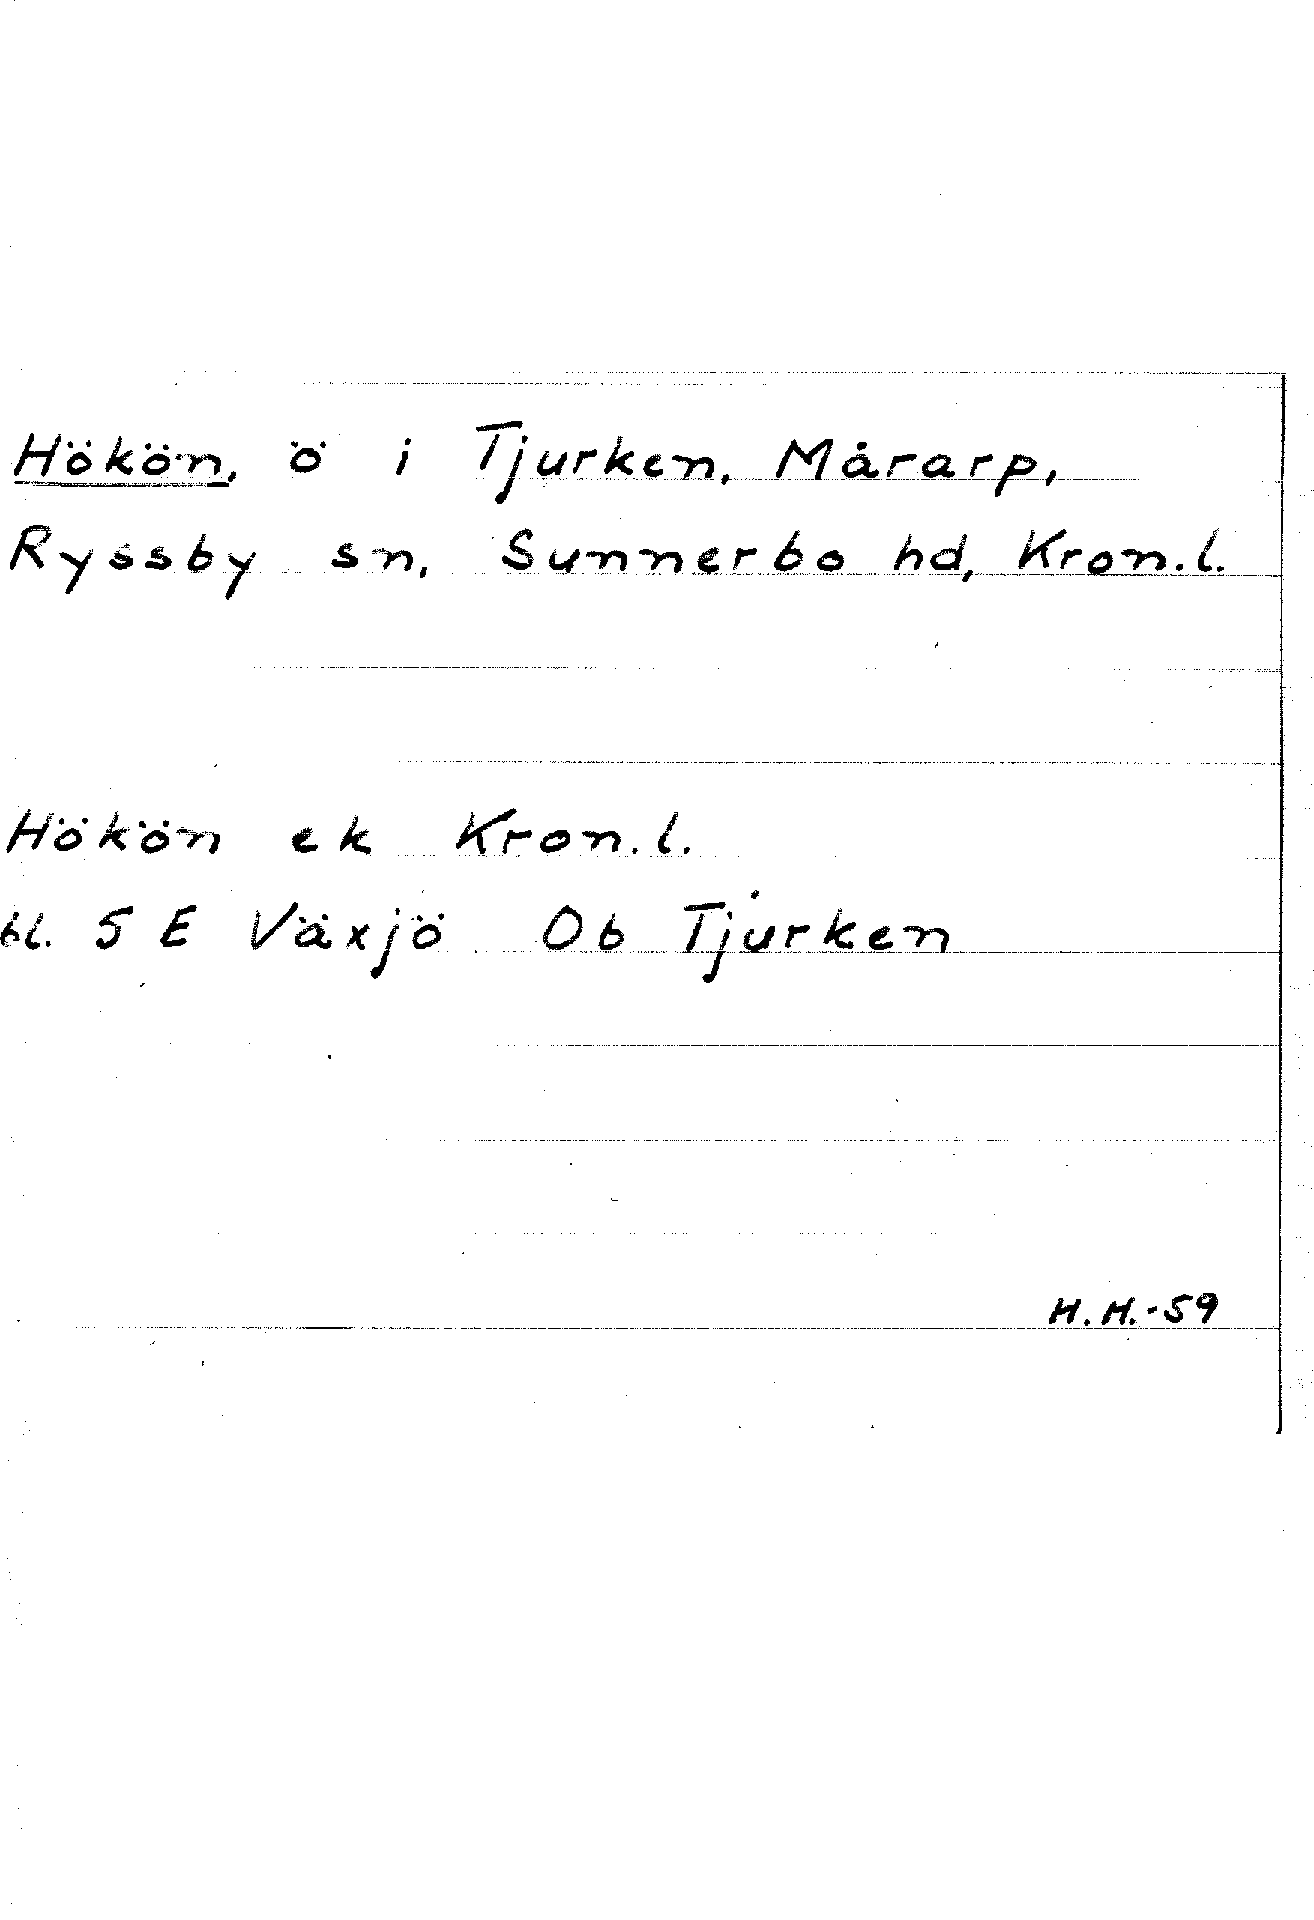 Hökön, ö i Tjurken, Mårarp,
Ryssby sn, Sunnerbo hd, Kron.l.
Hökön ek Kron.l.
bl. 5 E Växjö Ob Tjurken
H.H.-59